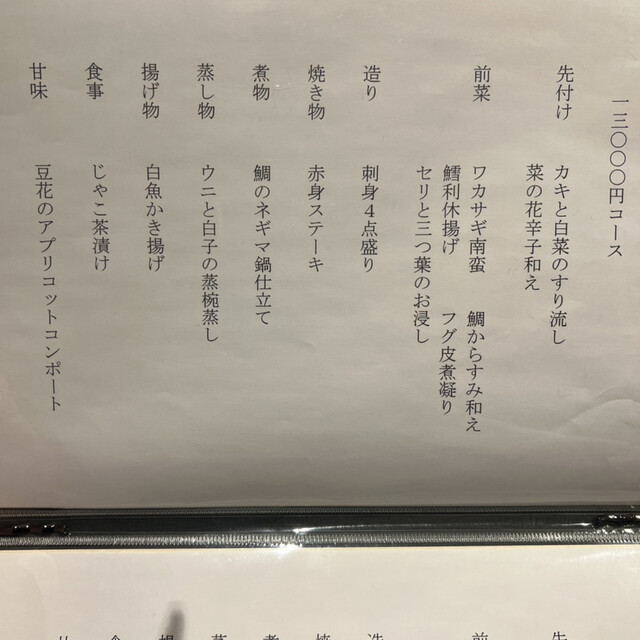 一三〇〇〇円コース
先付け　カキと白菜のすり流し
菜の花辛子和え
前菜　ワカサギ南蛮　鯛からすみ和え
鱈利休揚げ　フグ皮煮凝り
セリと三つ葉のお浸し
造り　刺身４点盛り
焼き物　赤身ステーキ
煮物　鯛のネギマ鍋仕立て
蒸し物　ウニと白子の蒸椀蒸し
揚げ物　白魚かき揚げ
食事　じゃこ茶漬け
甘味　豆花のアプリコットコンポート